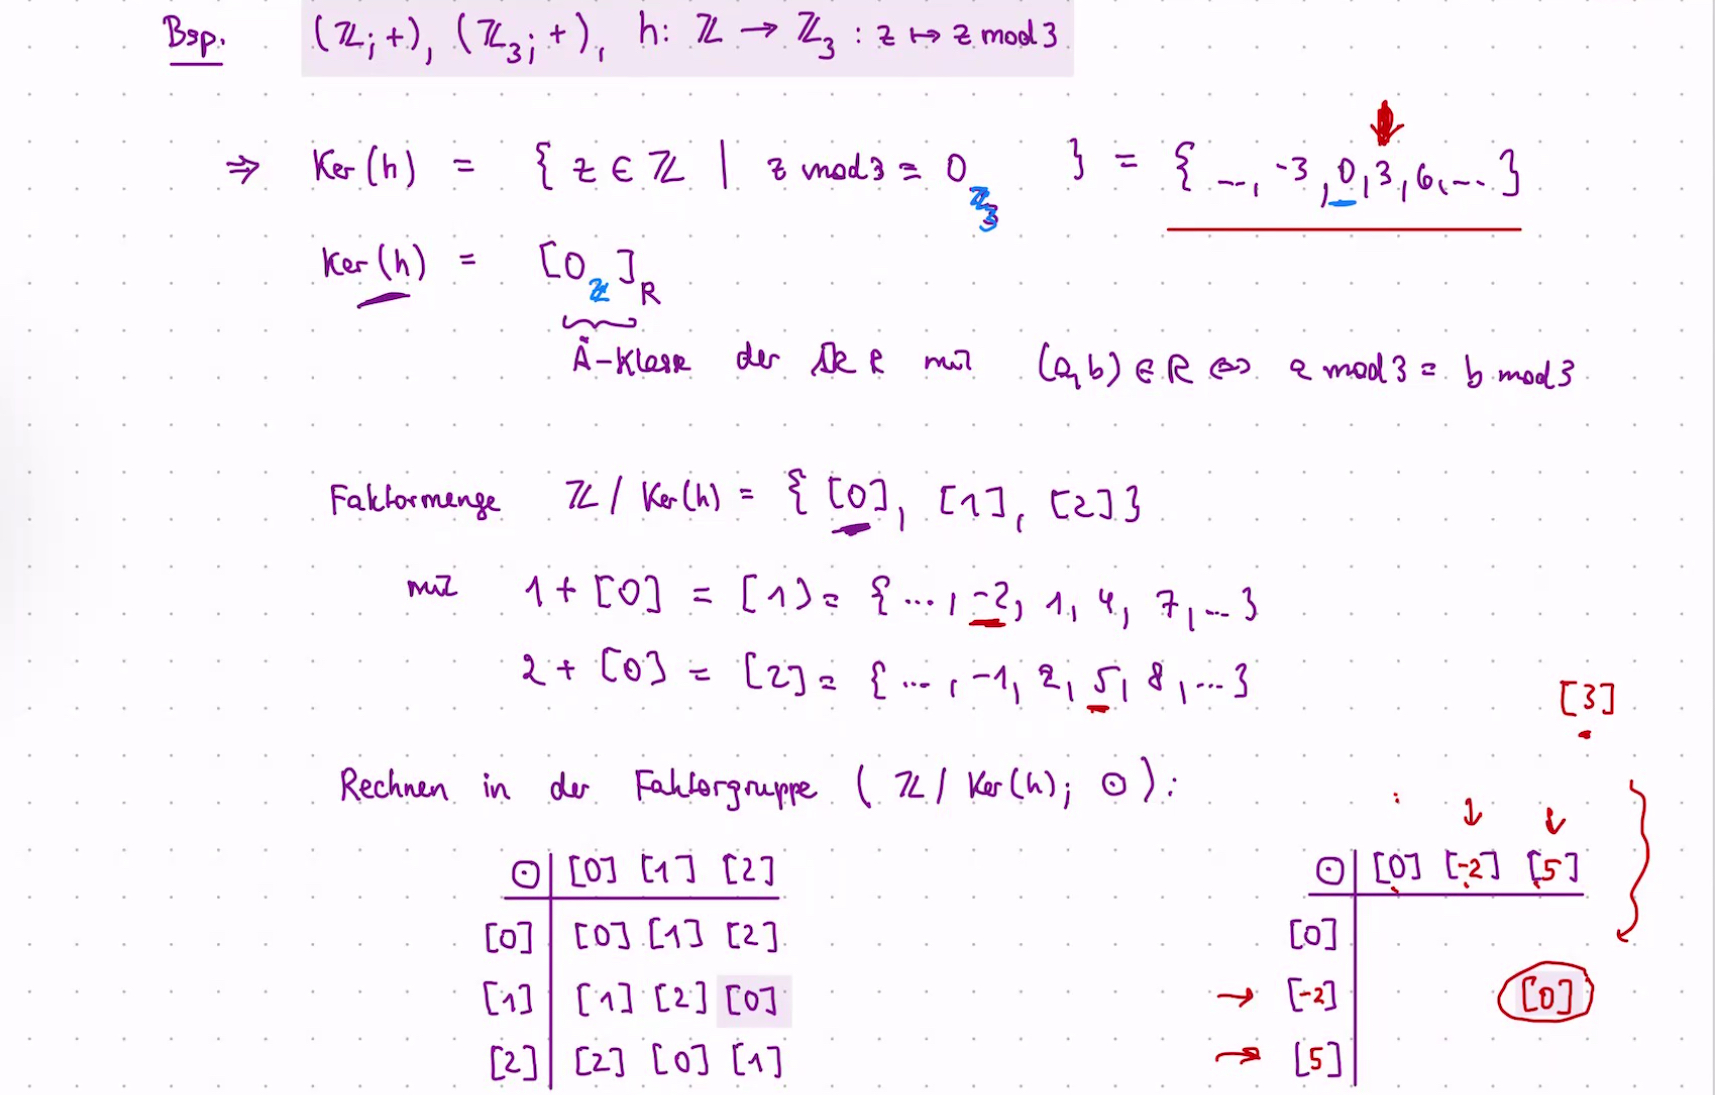 Bsp. (ℤ; +), (ℤ₃; +), h: ℤ → ℤ₃ : z ↦ z mod 3
⇒ Ker(h) = { z ∈ ℤ | z mod 3 = 0_ℤ₃ } = { ..., -3, 0, 3, 6, ... }
Ker(h) = [0_ℤ]_R
Ä-Klasse der ÄR R mit (a,b) ∈ R ⇔ a mod 3 = b mod 3
Faktormenge ℤ / Ker(h) = { [0], [1], [2] }
mit 1 + [0] = [1] = { ..., -2, 1, 4, 7, ... }
2 + [0] = [2] = { ..., -1, 2, 5, 8, ... }
[3]
Rechnen in der Faktorgruppe ( ℤ / Ker(h); ⊙ ):
⊙ | [0] [1] [2]
[0] | [0] [1] [2]
[1] | [1] [2] [0]
[2] | [2] [0] [1]
⊙ | [0] [-2] [5]
[0] |
[-2] | [0]
[5] |